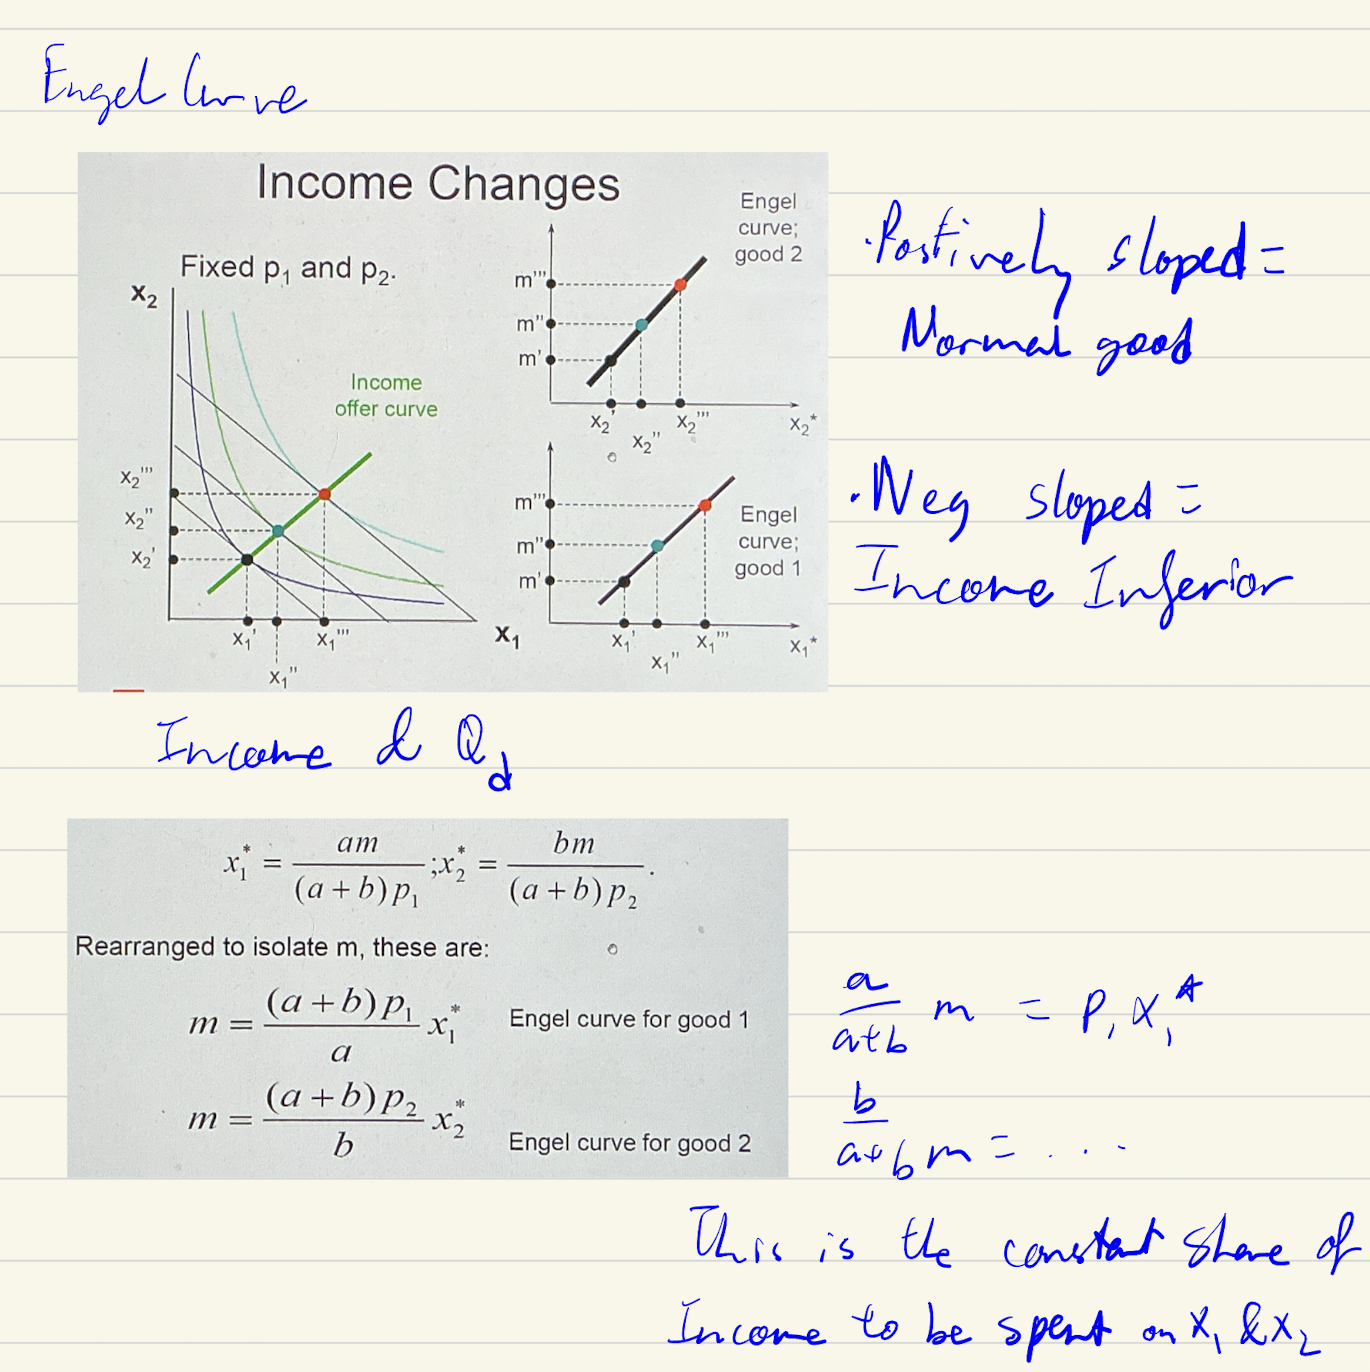 Engel Curve
Income Changes
Fixed p₁ and p₂.
x₂
Income
offer curve
x₂'''
x₂''
x₂'
x₁'
x₁''
x₁'''
x₁
Engel
curve;
good 2
m'''
m''
m'
x₂'
x₂''
x₂'''
x₂*
Engel
curve;
good 1
m'''
m''
m'
x₁'
x₁''
x₁'''
x₁*
·Postively sloped =
Normal good
·Neg sloped =
Income Inferior
Income & Qd
x₁* = am / (a + b)p₁ ; x₂* = bm / (a + b)p₂ .
Rearranged to isolate m, these are:
m = (a + b)p₁ / a x₁* Engel curve for good 1
m = (a + b)p₂ / b x₂* Engel curve for good 2
a / a+b m = P₁ x₁*
b / a+b m = ...
This is the constant share of
Income to be spent on x₁ & x₂